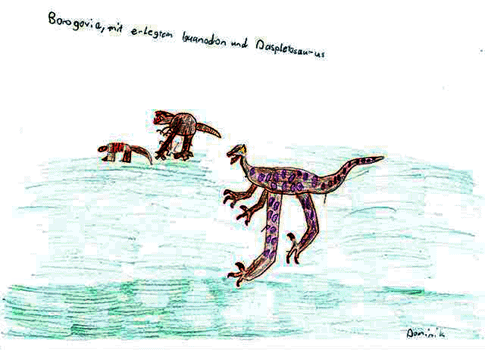 Borogovia, mit erlegtem Iguanodron und Daspletosaurus
Dominik